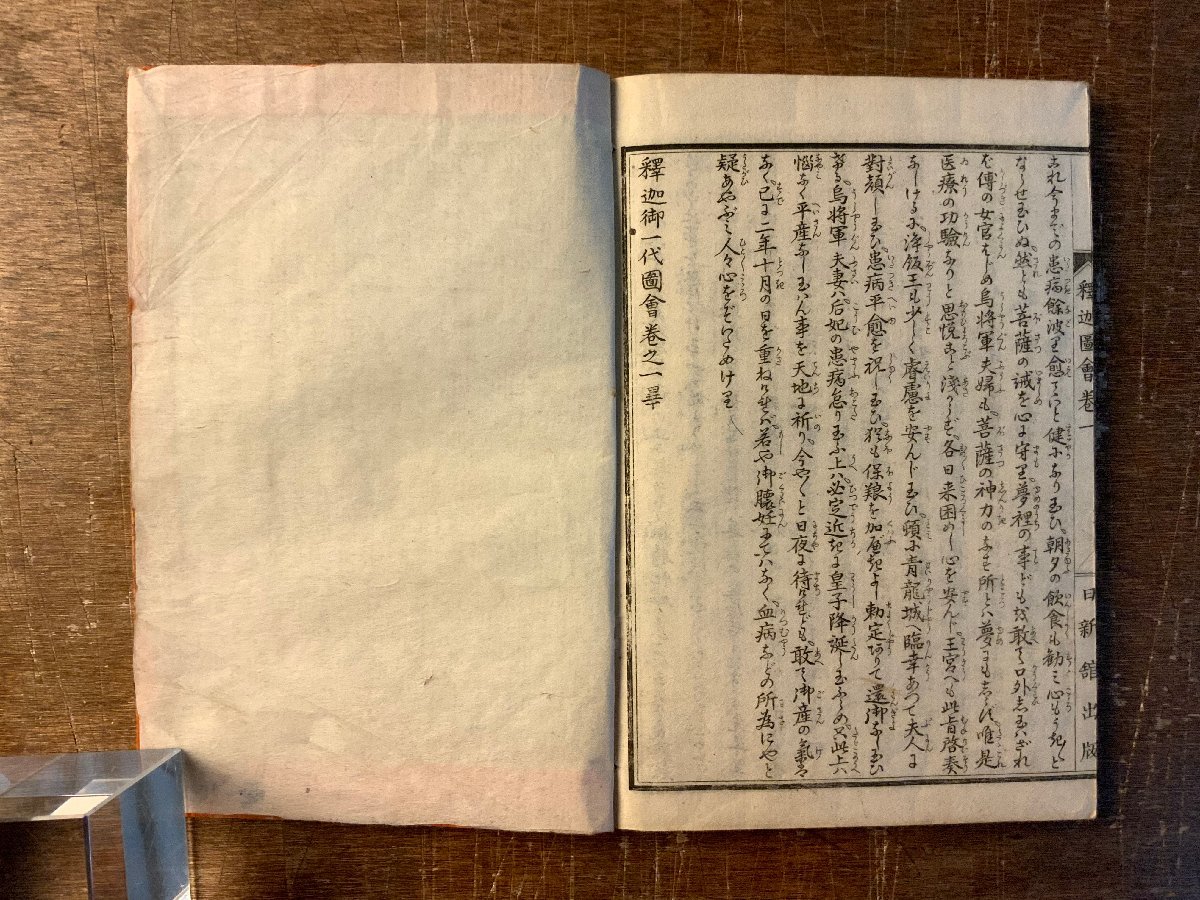 釋迦圖會卷一
日新舘出版
これ今までの患病餘波里愈て心と健になり玉ひ朝夕の飲食も勧ミ心もうきと
なしせ玉ひぬ然とも菩薩の誡を心に守里夢裡の事ども敢て口外し玉はざれ
傅の女官はじめ烏將軍夫婦も菩薩の神力のなす所とハ夢にもしらず唯是
医療の功驗なりと思悦こと淺からず各日来困めし心を安んじ王宮へも此旨啓奏
なしけるに浄飯王も少しく睿慮を安んじ玉ひ頓に青龍城へ臨幸あつて夫人に
對顔し玉ひ患病平愈を祝し玉ひ猶も保養を加べきよし勅定ありて還御なし玉ひ
ける烏將軍夫妻ハ后妃の患病怠り玉ふ上ハ必定近きに皇子降誕し玉ふらめ又此上ハ
惱なく平産なし玉はん事を天地に祈り今や〱と日夜に待けれども敢て御産の氣も
なく已に二年十月の日を重ねければ若や御腰妊にてハなく血病などの所為にやと
疑あやぶミ人々心をぞいためけり
釋迦御一代圖會卷之一畢